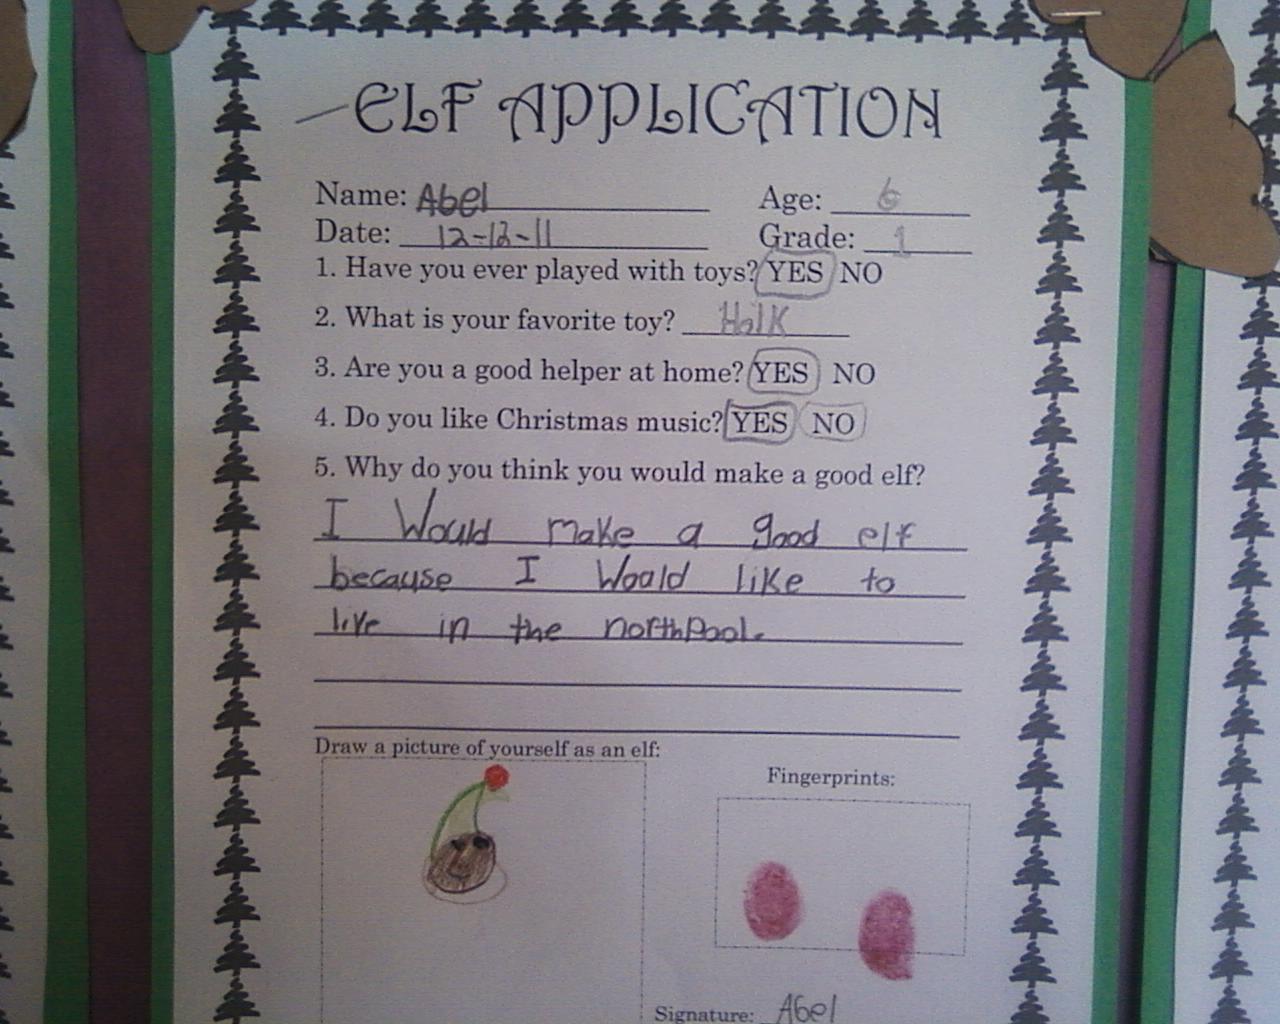 ELF APPLICATION
Name: Abel Age: 6
Date: 12-12-11 Grade: 1
1. Have you ever played with toys? YES NO
2. What is your favorite toy? Halk
3. Are you a good helper at home? YES NO
4. Do you like Christmas music? YES NO
5. Why do you think you would make a good elf?
I Would make a good elf
because I Would like to
live in the northpool.
Draw a picture of yourself as an elf:
Fingerprints:
Signature: Abel